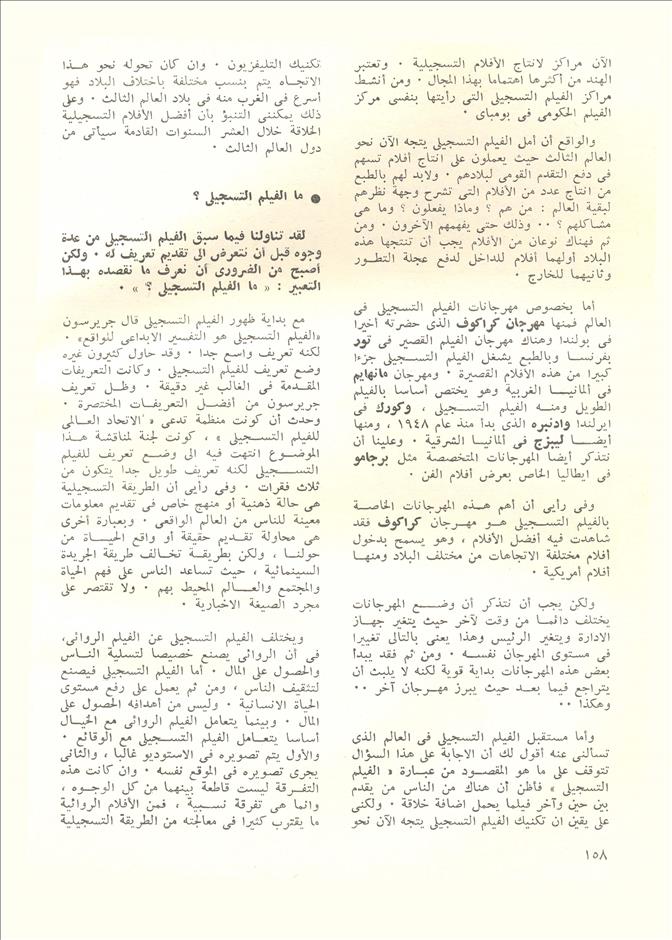 الآن مراكز لانتاج الأفلام التسجيلية ٠ وتعتبر
الهند من أكثرها اهتماما بهذا المجال ٠ ومن أنشط
مراكز الفيلم التسجيلى التى رأيتها بنفسى مركز
الفيلم الحكومى فى بومباى ٠
والواقع أن أمل الفيلم التسجيلى يتجه الآن نحو
العالم الثالث حيث يعملون على انتاج أفلام تسهم
فى دفع التقدم القومى لبلادهم ٠ ولابد لهم بالطبع
من انتاج عدد من الأفلام التى تشرح وجهة نظرهم
لبقية العالم : من هم ؟ وماذا يفعلون ؟ وما هى
مشاكلهم ؟ ٠٠ وذلك حتى يفهمهم الآخرون ٠ ومن
ثم فهناك نوعان من الأفلام يجب أن تنتجها هذه
البلاد أولهما أفلام للداخل لدفع عجلة التطور
وثانيهما للخارج ٠
أما بخصوص مهرجانات الفيلم التسجيلى فى
العالم فمنها مهرجان كراكوف الذى حضرته أخيرا
فى بولندا وهناك مهرجان الفيلم القصير فى تور
بفرنسا وبالطبع يشغل الفيلم التسجيلى جزءا
كبيرا من هذه الأفلام القصيرة ٠ ومهرجان مانهايم
فى ألمانيا الغربية وهو يختص أساسا بالفيلم
الطويل ومنه الفيلم التسجيلى ، وكورك فى
ايرلندا وادنبره الذى بدأ منذ عام ١٩٤٨ ، ومنها
أيضا ليبزج فى ألمانيا الشرقية ٠ وعلينا أن
نتذكر أيضا المهرجانات المتخصصة مثل برجامو
فى ايطاليا الخاص بعرض أفلام الفن ٠
وفى رأيى أن أهم هذه المهرجانات الخاصة
بالفيلم التسجيلى هو مهرجان كراكوف فقد
شاهدت فيه أفضل الأفلام ، وهو يسمح بدخول
أفلام مختلفة الاتجاهات من مختلف البلاد ومنها
أفلام أمريكية ٠
ولكن يجب أن نتذكر أن وضع المهرجانات
يختلف دائما من وقت لآخر حيث يتغير جهاز
الادارة ويتغير الرئيس وهذا يعنى بالتالى تغييرا
فى مستوى المهرجان نفسه ٠ ومن ثم فقد يبدأ
بعض هذه المهرجانات بداية قوية لكنه لا يلبث أن
يتراجع فيما بعد حيث يبرز مهرجان آخر ٠٠
وهكذا ٠٠
وأما مستقبل الفيلم التسجيلى فى العالم الذى
تسألنى عنه أقول لك أن الاجابة على هذا السؤال
تتوقف على ما هو المقصود من عبارة « الفيلم
التسجيلى » فأظن أن هناك من الناس من يقدم
بين حين وآخر فيلما يحمل اضافة خلاقة ٠ ولكنى
على يقين ان تكنيك الفيلم التسجيلى يتجه الآن نحو
تكنيك التليفزيون ٠ وان كان تحوله نحو هذا
الاتجاه يتم بنسب مختلفة باختلاف البلاد فهو
أسرع فى الغرب منه فى بلاد العالم الثالث ٠ وعلى
ذلك يمكننى التنبؤ بأن أفضل الأفلام التسجيلية
الخلاقة خلال العشر السنوات القادمة سيأتى من
دول العالم الثالث ٠
● ما الفيلم التسجيلى ؟
لقد تناولنا فيما سبق الفيلم التسجيلى من عدة
وجوه قبل أن نتعرض الى تقديم تعريف له ٠ ولكن
أصبح من الضرورى أن نعرف ما نقصده بهذا
التعبير : « ما الفيلم التسجيلى ؟ » ٠
مع بداية ظهور الفيلم التسجيلى قال جريرسون
«الفيلم التسجيلى هو التفسير الابداعى للواقع» ٠
لكنه تعريف واسع جدا ٠ وقد حاول كثيرون غيره
وضع تعريف للفيلم التسجيلى ٠ وكانت التعريفات
المقدمة فى الغالب غير دقيقة ٠ وظل تعريف
جريرسون من أفضل التعريفات المختصرة ٠
وحدث أن كونت منظمة تدعى « الاتحاد العالمى
للفيلم التسجيلى » ، كونت لجنة لمناقشة هذا
الموضوع انتهت فيه الى وضع تعريف للفيلم
التسجيلى لكنه تعريف طويل جدا يتكون من
ثلاث فقرات ٠ وفى رأيى أن الطريقة التسجيلية
هى حالة ذهنية أو منهج خاص فى تقديم معلومات
معينة للناس من العالم الواقعى ٠ وبعبارة أخرى
هى محاولة تقديم حقيقة أو واقع الحياة من
حولنا ، ولكن بطريقة تخالف طريقة الجريدة
السينمائية ، حيث تساعد الناس على فهم الحياة
والمجتمع والعالم المحيط بهم ٠ ولا تقتصر على
مجرد الصيغة الاخبارية ٠
ويختلف الفيلم التسجيلى عن الفيلم الروائى،
فى أن الروائى يصنع خصيصا لتسلية الناس
والحصول على المال ٠ أما الفيلم التسجيلى فيصنع
لتثقيف الناس ، ومن ثم يعمل على رفع مستوى
الحياة الانسانية ٠ وليس من أهدافه الحصول على
المال ٠ وبينما يتعامل الفيلم الروائى مع الخيال
أساسا يتعامل الفيلم التسجيلى مع الوقائع ٠
والأول يتم تصويره فى الاستوديو غالبا ، والثانى
يجرى تصويره فى الموقع نفسه ٠ وان كانت هذه
التفرقة ليست قاطعة بينهما من كل الوجوه ،
وانما هى تفرقة نسبية ، فمن الأفلام الروائية
ما يقترب كثيرا فى معالجته من الطريقة التسجيلية
١٥٨